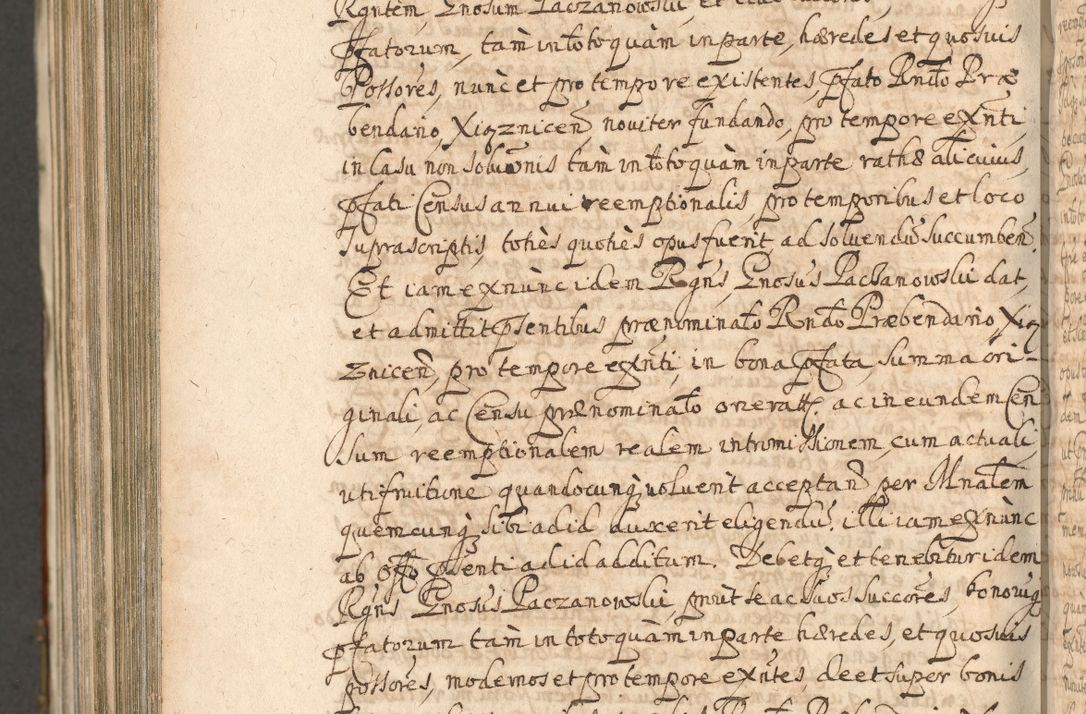 Rgntem, Gnosum Paczanowski, et eius
pfatorum, tam in toto quàm in parte, hæredes et quosuis
Possores, nunc et pro tempore existentes, pfato Rndo Præ
bendario, Xięznicen noviter fundando, pro tempore exnti,
in Casu non solu͠onis tam in toto quàm in parte rathæ alicuius
pfati Census annui reemptionalis, pro temporibus et loco
suprascriptis, toties quoties opus fuerit, ad solvendū succumben
Et iam ex nunc idem Rgns, Gnosus Paczanowski dat,
et admittit psentibus prænominato Rndo Præbendario Xię
znicen, pro tempore exnti, in bona pfata, summa ori-
ginali, ac Censu prænominato onerata, ac in eundem Cen
sum reemptionalem realem intromissionem, cum actuali
utifruitione quandocunq voluerit acceptan per Mnalem
quemcunq sibi ad id duxerit eligendū, illi iam ex nunc
ab offo psenti ad id additum. Debetq et tenebitur idem
Rgns Gnosus Paczanowski, prout se ac suos succores, bonorūq
pfatorum tam in toto quàm in parte hæredes, et quosuis
possores, modernos et pro tempore exntes, de et super bonis